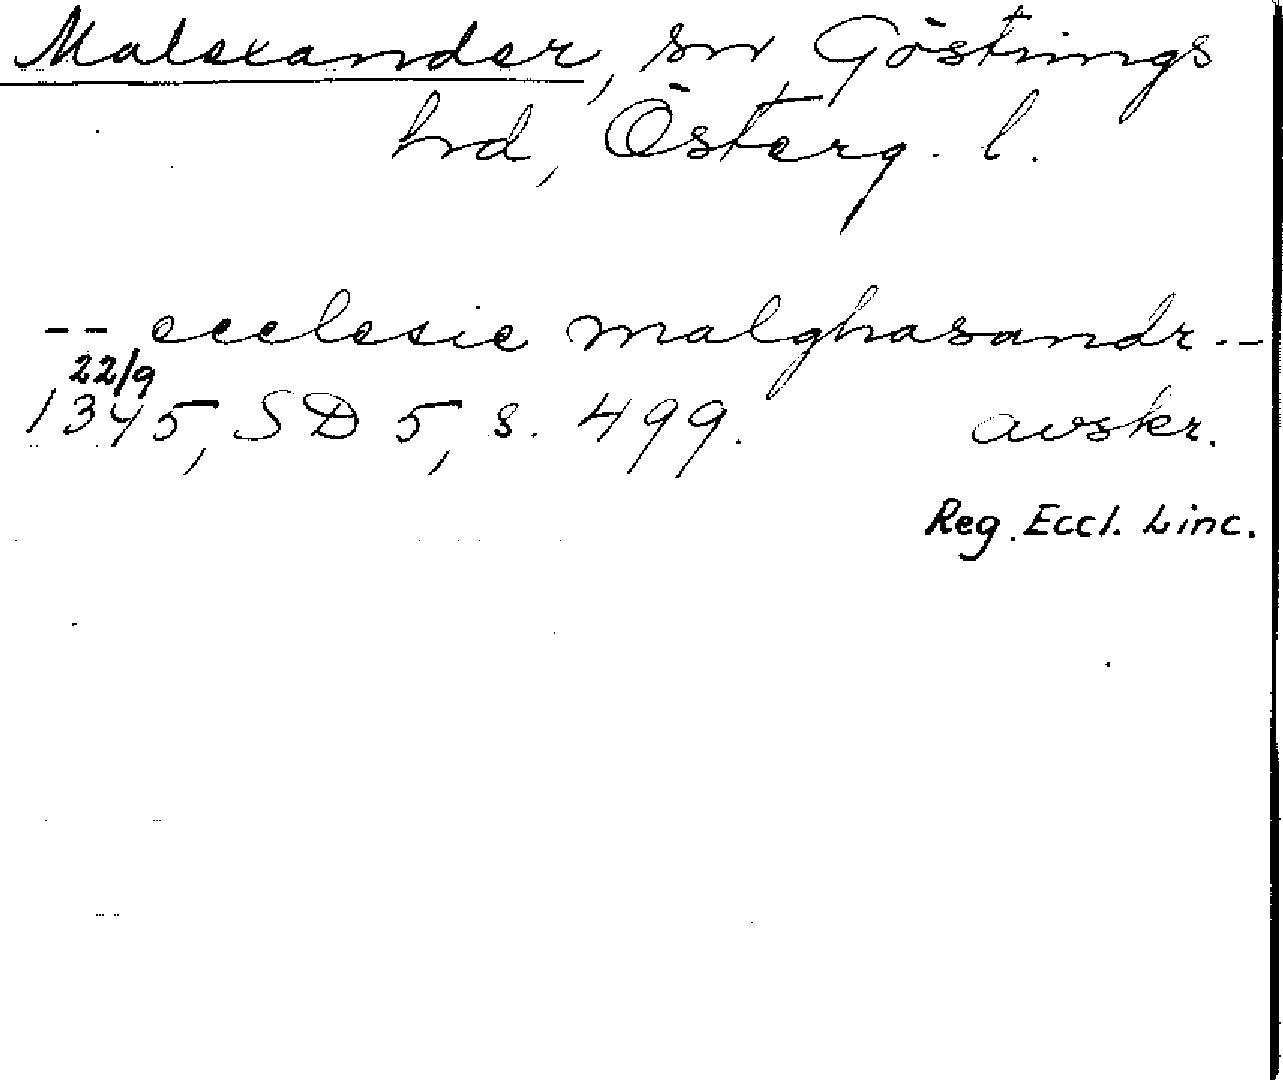 Malexander, sn Göstrings
hd, Österg. l.
-- ecclesie malghasandr --
22/9
1345, SD 5, s. 499. avskr.
Reg. Eccl. Linc.